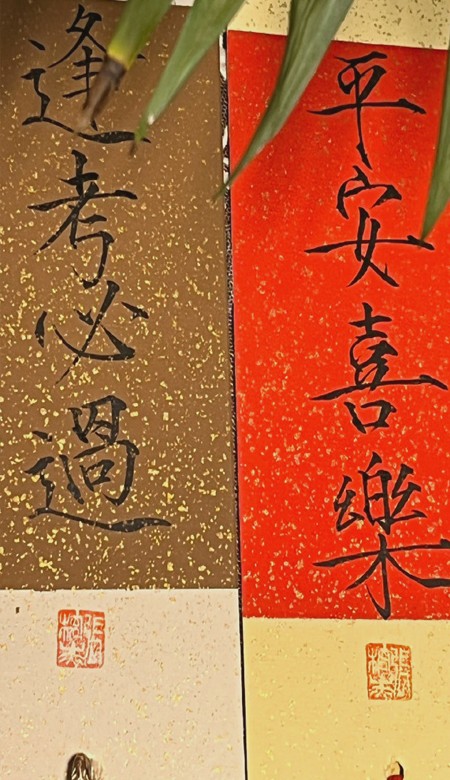 平安喜樂
逢考必過